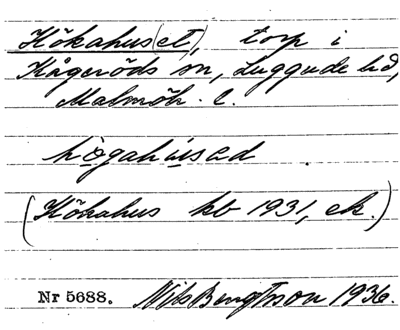 Hökahus(et), torp i
Kågeröds sn, Luggude hd,
Malmöh. l.
högahused.
(Hökahus kb 1931, ek.)
Nr 5688. Nils Bengtsson 1936.